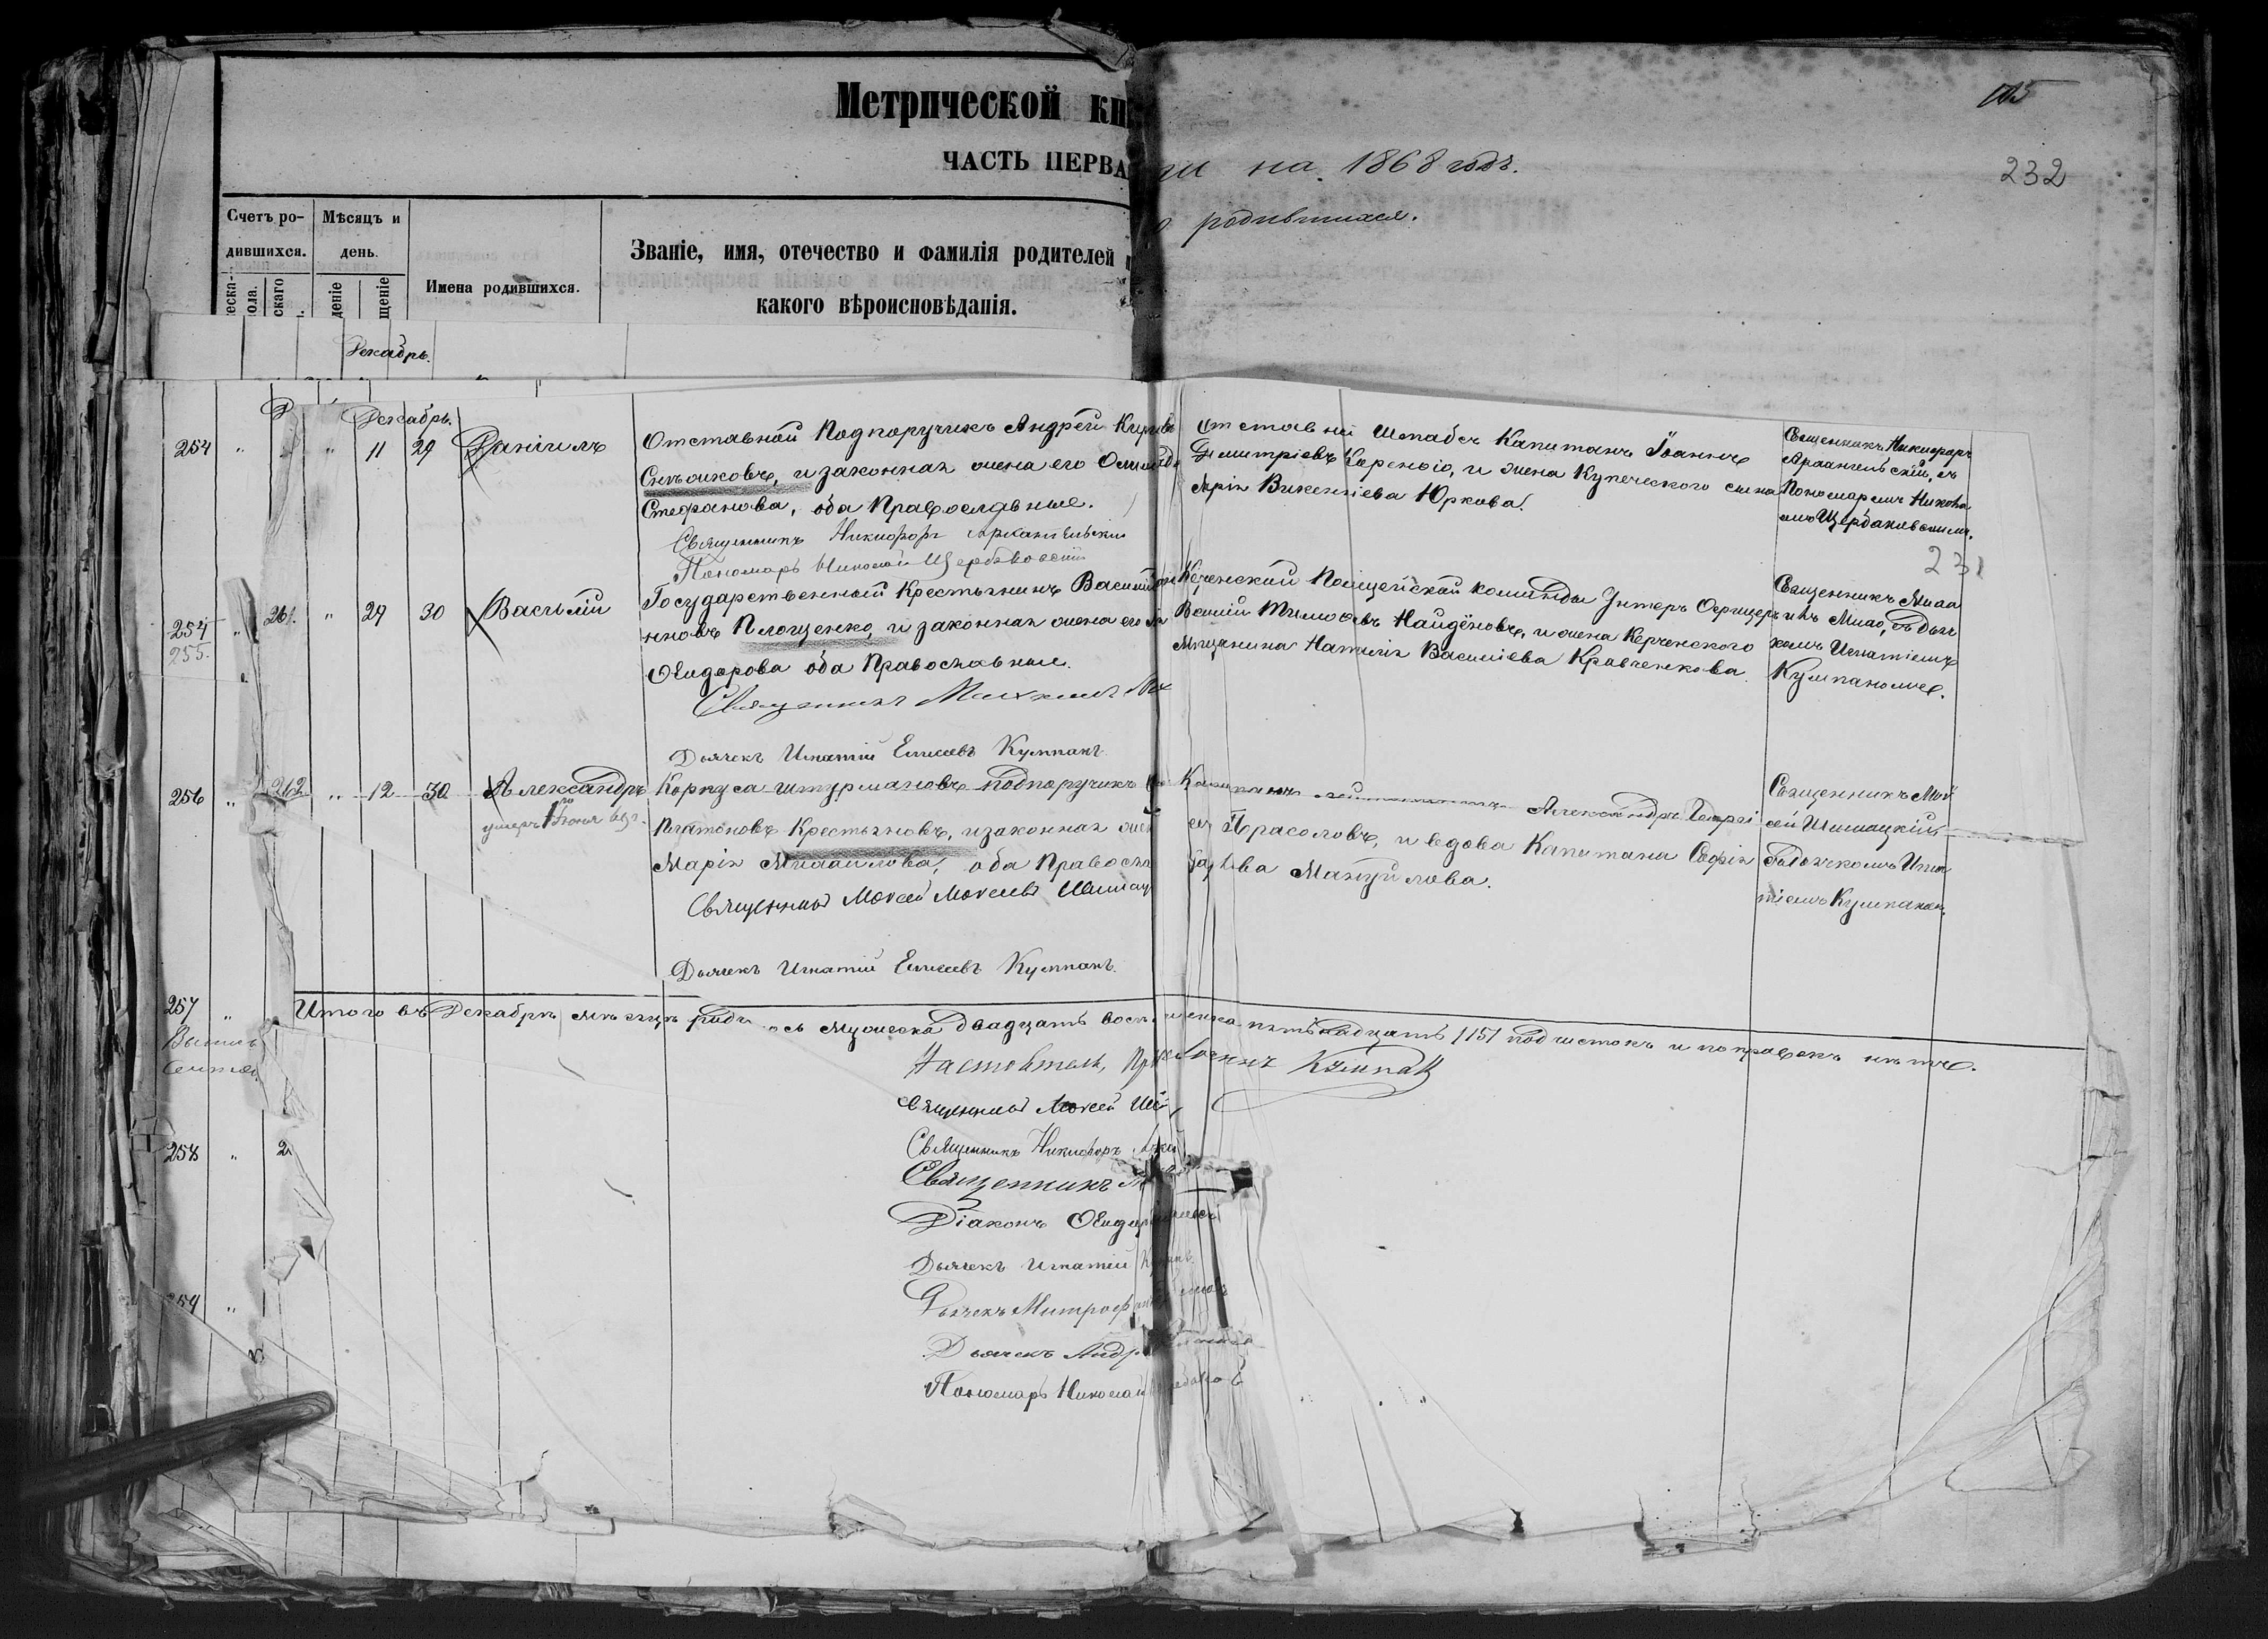 Метрической кн
ЧАСТЬ ПЕРВА
на 1868 годъ.
родившихся.
232
Счетъ ро-
дившихся.
Мѣсяцъ и
день.
Имена родившихся.
Званіе, имя, отечество и фамилія родителей
какого вѣроисповѣданія.
еска-
ола.
скаго
деніе
щеніе
Декабрь.
Декабрь.
254 " " 11 29 Даніилъ
Отставной Подпоручикъ Андрей
и законная жена его
Стефанова, оба Православные.
Священникъ Никифоръ Архангельскій
Пономарь Николай Щербаковскій
Отставный Штабсъ Капитанъ Іоаннъ
Димитріевъ и жена Купеческого сына
Марія Викентіева Юркова.
Священникъ Никифоръ
Архангельскій, съ
Пономаремъ Никола
емъ Щербаковскимъ.
231
254
255.
" 261. " 29 30 Василій
Государственный Крестьянинъ Василій
нновъ Площенко, и законная жена его
Сидорова оба Православные.
Священникъ Михаилъ
Дьячекъ Игнатій Елисеевъ Кумпанъ
Керченской Полицейской команды Унтеръ Офицеръ
Василій Тимофеевъ Найдёновъ, и жена Керченского
Мѣщанина Наталія Василіева Кравченкова
Священникъ Миха
илъ Мило, съ Дьяч
комъ Игнатіемъ
Кумпаномъ.
256 " 262 " 12 30 Александръ
умеръ
Корпуса штурмановъ подпоручикъ
Платоновъ Крестьяновъ, и законная жен
Марія Михаилова, оба Правосла
Священникъ Моисей Моисеевъ Шимац
Дьячекъ Игнатій Елисеевъ Кумпанъ.
Капитанъ лейтенантъ Александръ Георгі
евъ Прасоловъ, и вдова Капитана Софія
Мануйлова.
Священникъ Мои
сей Шимацкій
съ Дьячкомъ Игна
тіемъ Кумпаном.
257 "
Итого въ Декабрѣ мѣсяцѣ мужеска двадцать женска пятнадцать /15/ подчистокъ и поправокъ нѣтъ.
Настоятель, Кумпанъ
Священникъ Моисей
258 " 2
Священникъ Никифоръ
Священникъ
Діаконъ
Дьячекъ Игнатій
259 "
Дьячекъ Митрофанъ
Дьячекъ Андр
Пономарь Николай